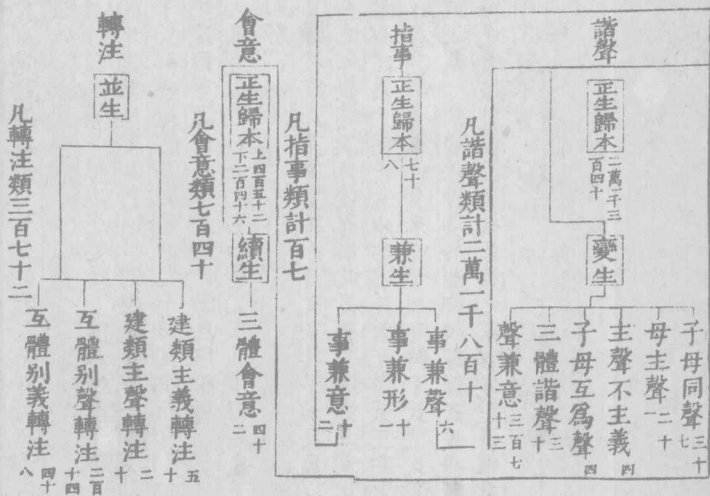 諧聲
正生歸本
二萬一千三百四十
變生
子母同聲 三十七
母主聲 二十一
主聲不主義 四
子母互為聲 四
三體諧聲 三十
聲兼意 三百七十三
凡諧聲類計二萬一千八百十
指事
正生歸本
七十八
兼生
事兼聲 六
事兼形 十一
事兼意 十二
凡指事類計百七
會意
正生歸本
上四百五十二
下二百四十六
續生
三體會意 四十二
凡會意類七百四十
轉注
並生
建類主義轉注 五十
建類主聲轉注 二十
互體別聲轉注 二百十四
互體別義轉注 四十八
凡轉注類三百七十二